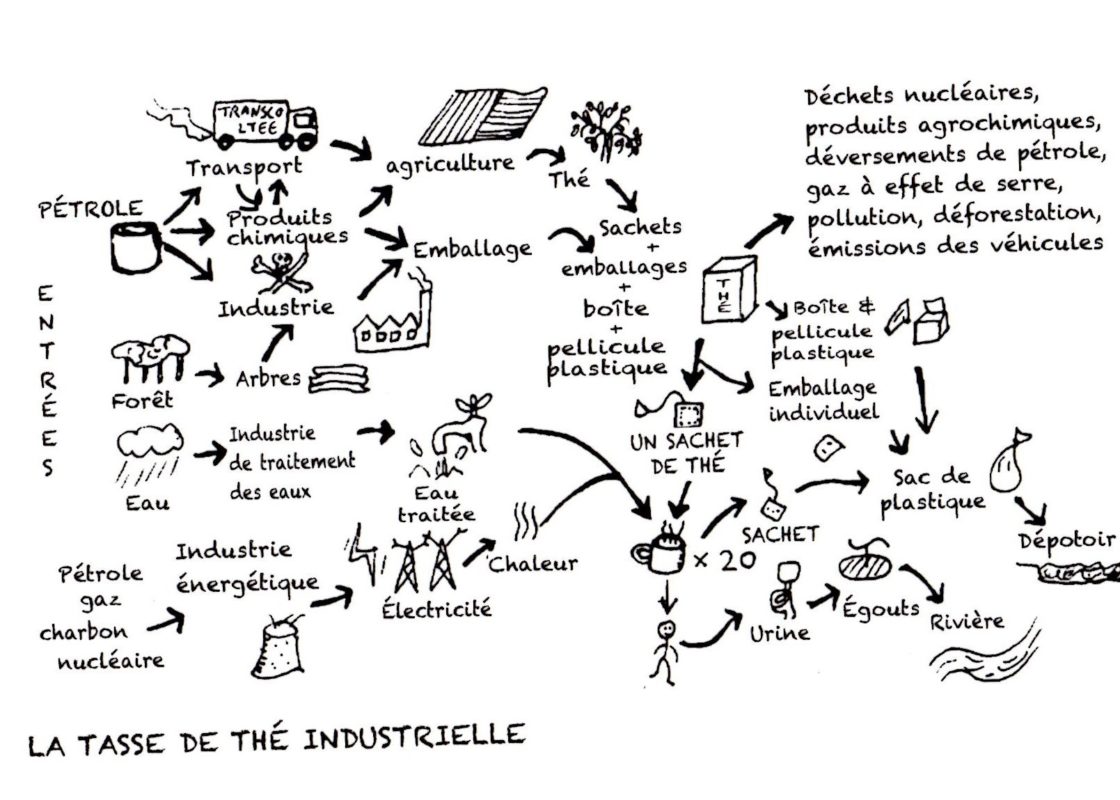 TRANSCO
LTEE
Transport
PÉTROLE
Produits
chimiques
Industrie
ENTRÉES
Forêt
Arbres
Eau
Industrie
de traitement
des eaux
Pétrole
gaz
charbon
nucléaire
Industrie
énergétique
agriculture
Thé
Emballage
Sachets
+
emballages
+
boîte
+
pellicule
plastique
Eau
traitée
Électricité
Chaleur
THÉ
Déchets nucléaires,
produits agrochimiques,
déversements de pétrole,
gaz à effet de serre,
pollution, déforestation,
émissions des véhicules
Boîte &
pellicule
plastique
Emballage
individuel
UN SACHET
DE THÉ
SACHET
x 20
Sac de
plastique
Dépotoir
Urine
Égouts
Rivière
LA TASSE DE THÉ INDUSTRIELLE